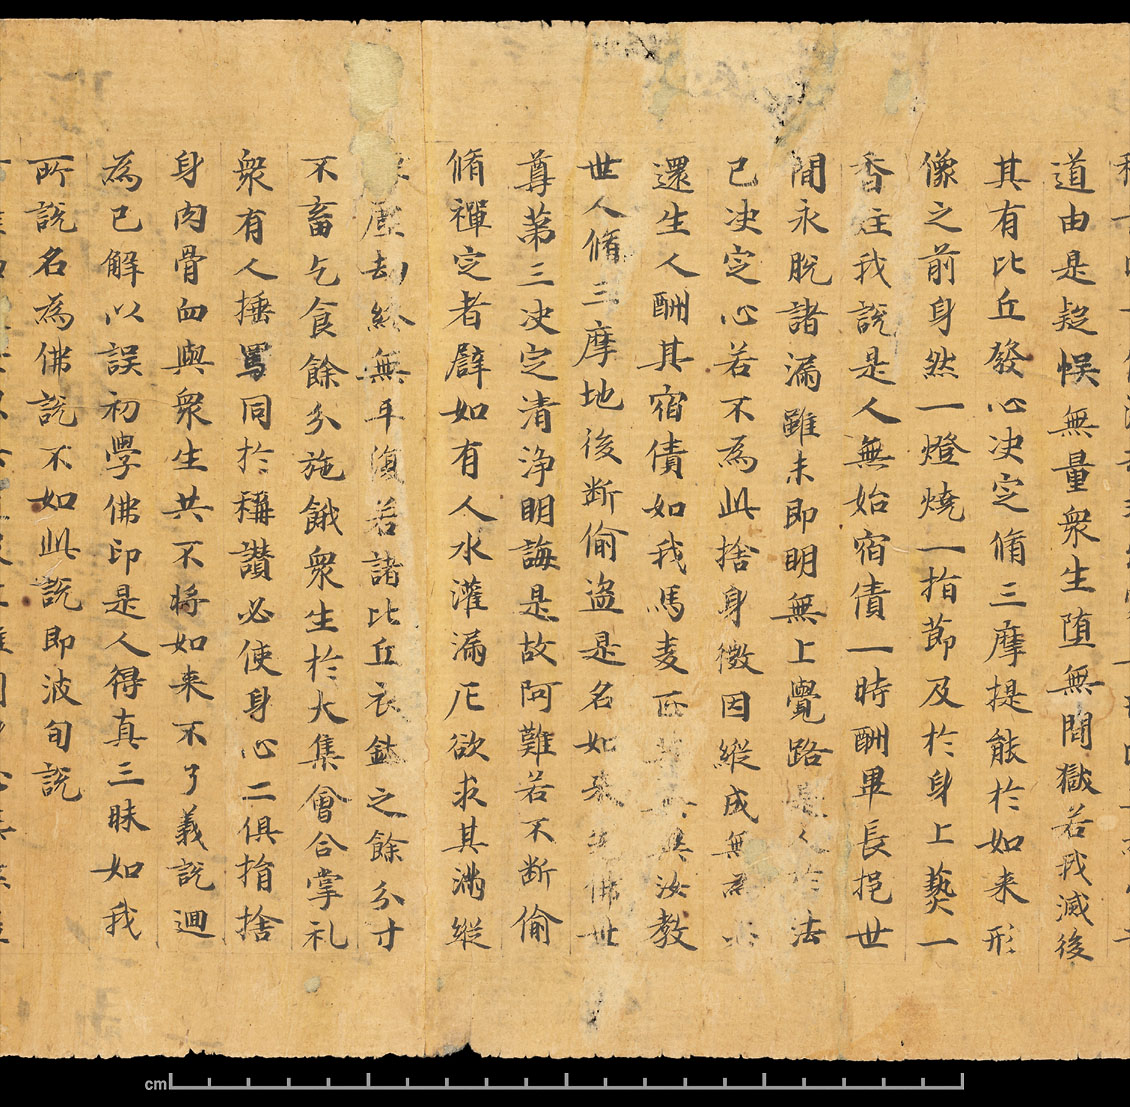 道由是疑悮無量衆生墮無間獄若我滅後
其有比丘發心决定脩三摩提能於如来形
像之前身然一燈燒一指莭及於身上爇一
香炷我說是人無始宿債一時酬畢長挹世
間永脫諸漏雖未即明無上覺路是人於法
已决定心若不為此捨身微因縱成無為必
還生人酬其宿債如我馬麦 汝教
世人脩三摩地後断偷盗是名如来 佛世
尊苐三决定清淨明誨是故阿難若不断偷
脩禪定者譬如有人水灌漏卮欲求其滿縱
塵劫終無平復若諸比丘衣鉢之餘分寸
不畜乞食餘分施餓衆生於大集會合掌礼
衆有人捶罵同於稱讃必使身心二俱捐捨
身肉骨血與衆生共不將如来不了義說迴
為已解以誤初學佛印是人得真三昧如我
所說名為佛說不如此說即波旬說